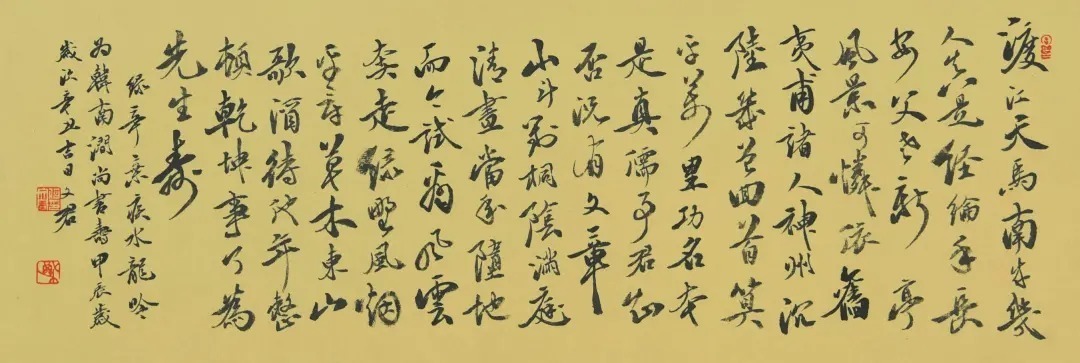 渡江天馬南來幾
人真是經綸手長
安父老新亭
風景可憐依舊
夷甫諸人神州沉
陸幾曾回首算
平戎萬里功名本
是真儒事君知
否況有文章
山斗對桐陰滿庭
清晝當年墮地
而今試看風雲
奔走綠野風烟
平泉草木東山
歌酒待他年整
頓乾坤事了為
先生壽
錄辛棄疾水龍吟
為韓南澗尚書壽甲辰歲
歲次辛丑吉日文君